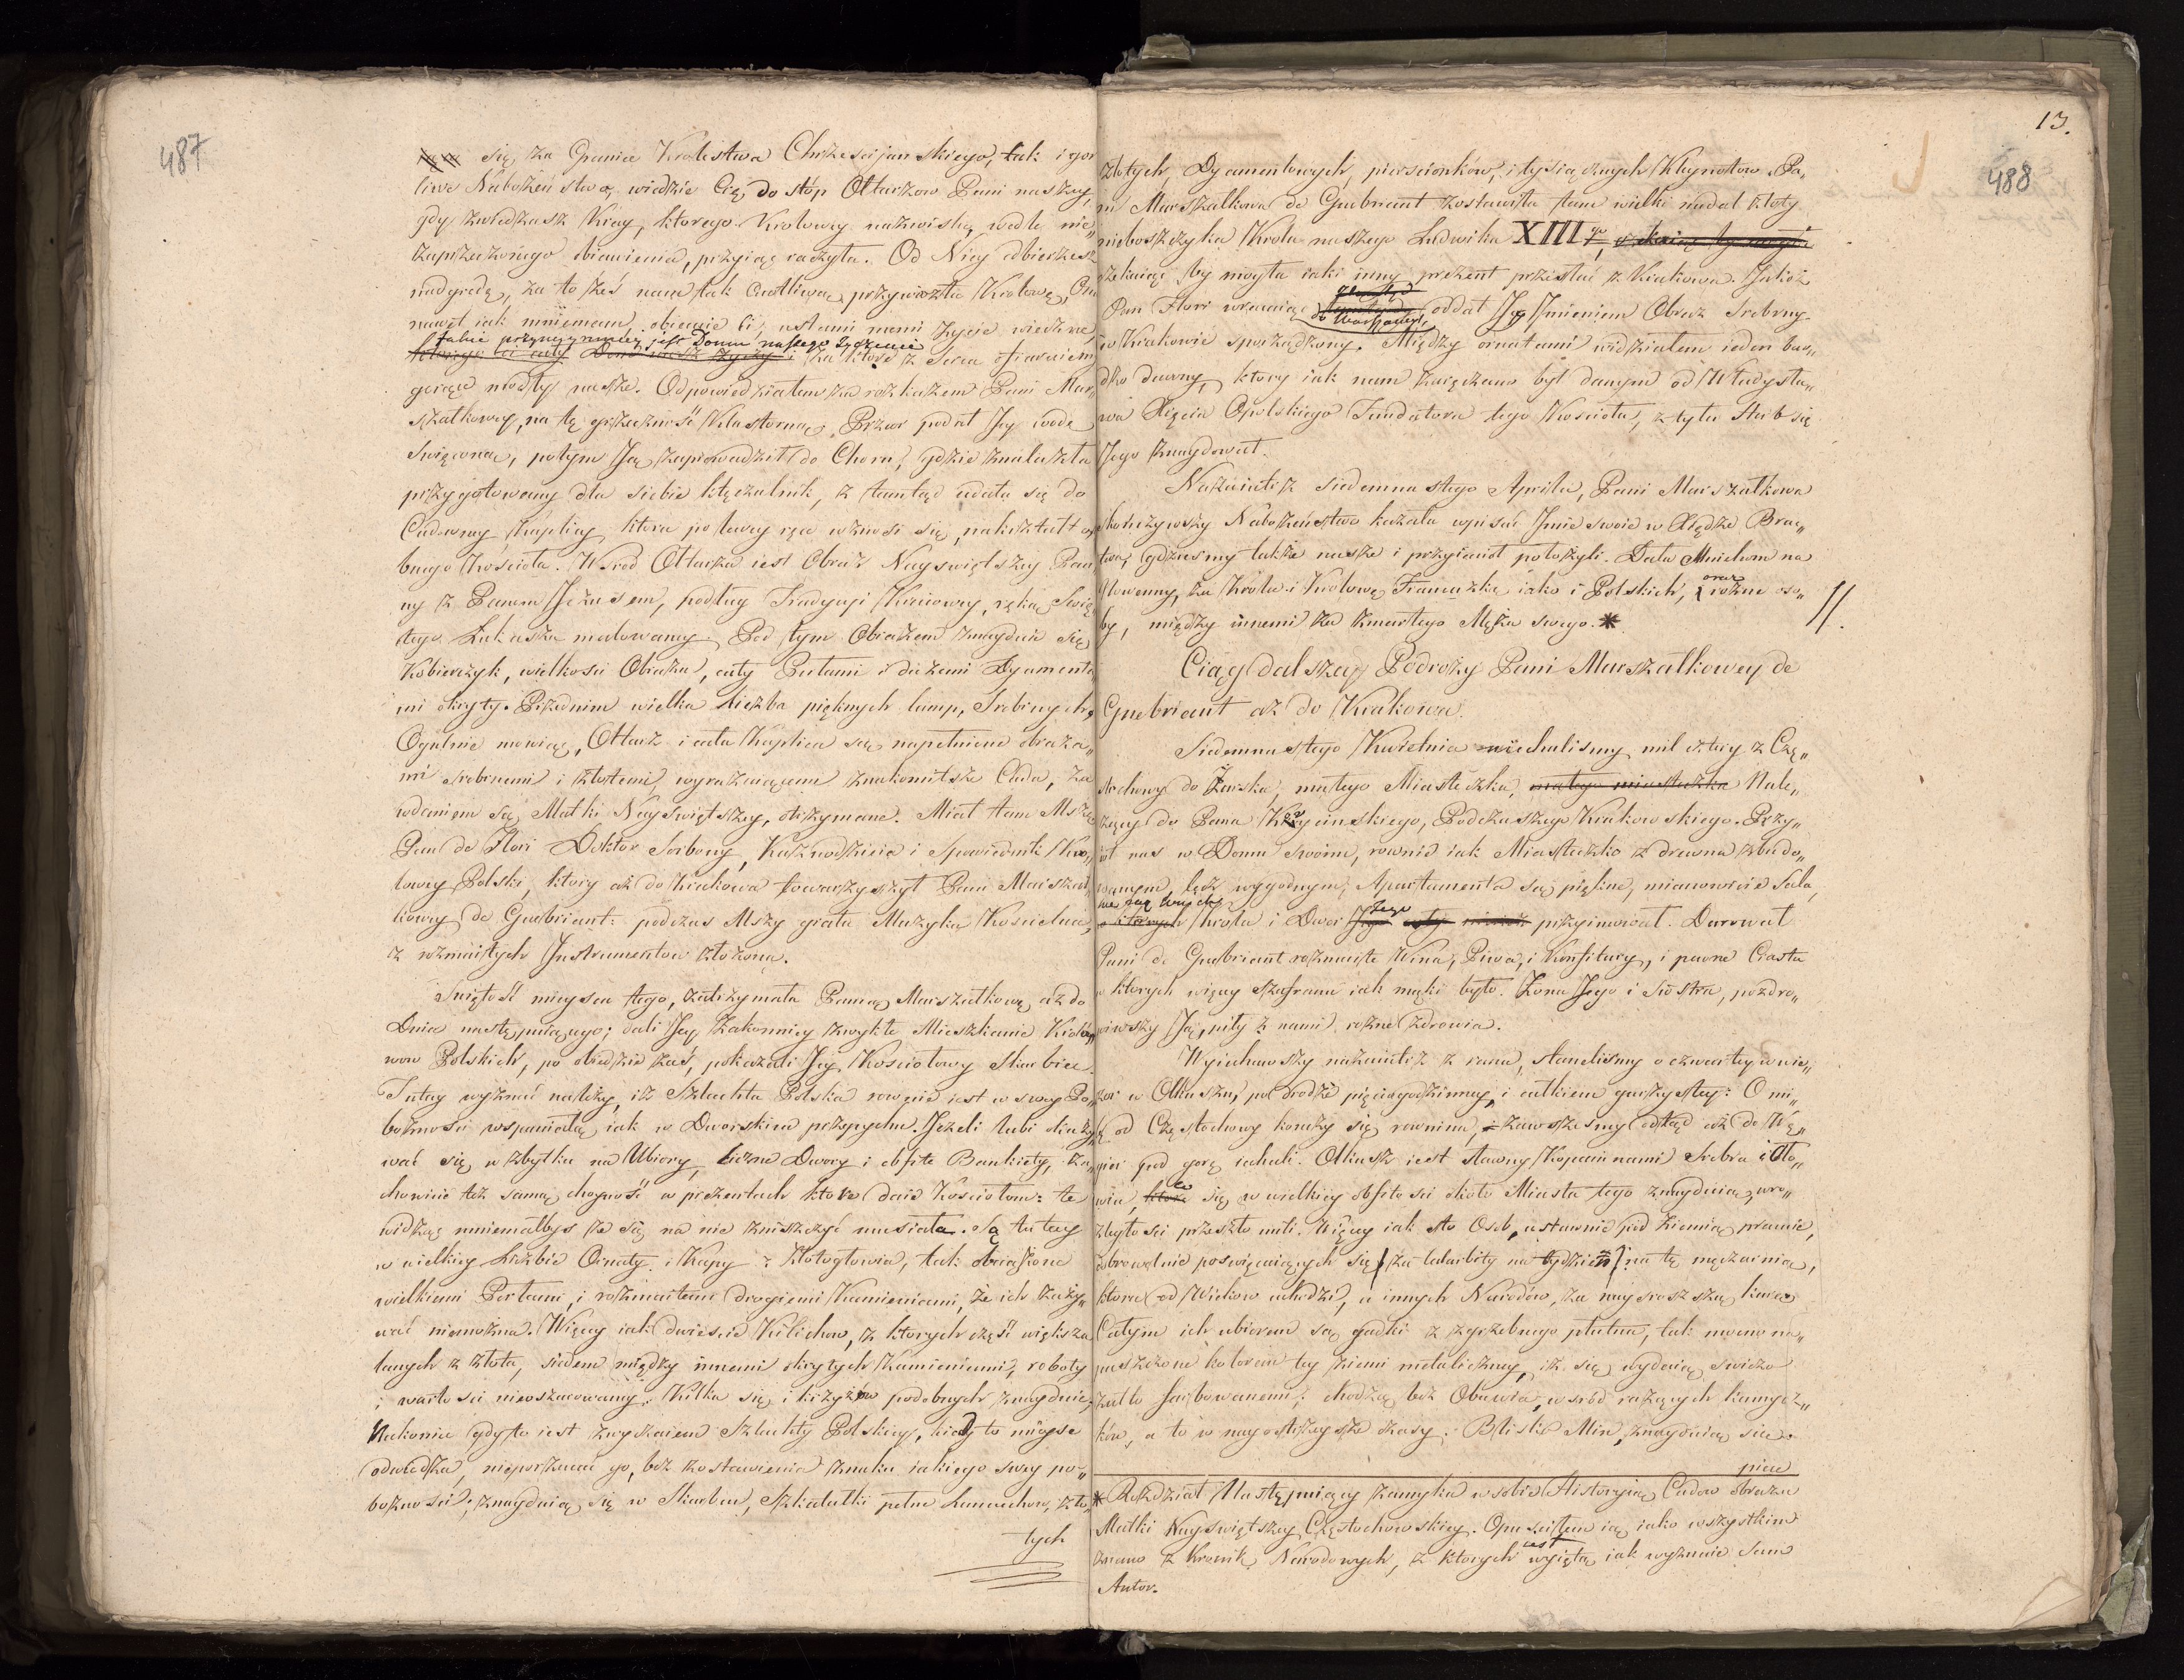 487
się za Granice Krolestwa Chrzescijanskiego, tak i gor
liwe Nabożeństwo, wiedzie Cię do stóp Ołtarzow Pani naszey,
gdy zwiedzasz Kray, ktorego Krolowey nazwisko, wedle nie„
zaprzeczonego obiawienia, przyiąć raczyła. Od Niey odbierzesz
nadgrodę, za to żeś nam tak Cnotliwą przywiozła Krolowę, Ona
nawet iak mniemam, obiecuie Ci, ustami memi życie wieczne,
Takie przynaymniey jest Domu naszego życzenie
i za ktore z Serca ofiaruiemy
gorące modły nasze. Odpowiedziałem za rozkazem Pani Mar„
szałkowey, na tę grzeczność Klasztorną. Przeor podał Jey wodę
Swięconą, potym Ją zaprowadził do Choru, gdzie znalazła
przygotowany dla siebie klęczalnik, z tamtąd udała się do
Cudowney Kaplicy, ktora po lewey ręce wznosi się, nakształt oso
bnego Kościoła. Wsrod Ołtarza iest Obraz Nayswiętszey Pan
ny z Panem Jezusem, podług Tradycyi Kraiowey, ręką Swię„
tego Łukasza malowany. Pod tym Obrazem znayduie się
Kobierzyk, wielkości Obrazu, cały Perłami i dużemi Dyamenta
mi okryty. Przed nim wielka liczba pięknych lamp, Srebrnych.
Ogulnie mowiąc, Ołtarz i cała Kaplica są napełnione obraza„
mi srebrnemi i złotemi, wyrażaiącemi znakomitsze Cuda, za
wdaniem się Matki Nayswiętszey, otrzymane. Miał tam Mszą
Pan de Flori Doktor Sorbony, Kaznodzieia i Spowiednik Kro„
lowey Polski, ktory aż do Krakowa towarzyszył Pani Marszał„
kowey de Guebriant: podczas Mszy grała Muzyka Kościelna,
z rozmaitych Instrumentow złożona.
Swiętość mieysca tego, zatrzymała Panią Marszałkowę aż do
Dnia następuiącego; dali Jey Zakonnicy zwykłe Mieszkanie Krolo„
wow Polskich, po obiedzie zaś, pokazali Jey Kościołowy Skarbiec.
Tutay wyznać należy, iż Szlachta Polska rownie iest w swey Po„
bożności wspaniałą, iak w Dworskim przepychu. Jeżeli lubi okazy„
wać się w zbytku na Ubiory, liczne Dwory i obfite Bankiety, za„
chowuie też samą choyność w prezentach ktore daie Kościołom: te
widząc mniemałbyś że się na nie zniszczyć musiała. Są tutay
w wielkiey liczbie Ornaty i Kapy z Złotogłowia, tak obciążone
wielkiemi Perłami, i rozmaitemi drogiemi Kamieniami, że ich zaży„
wać niemożna. Więcey iak dwieście Kielichow, z ktorych część większa
lanych z złota, siedem między innemi okrytych Kamieniami, roboty
i wartości nieoszacowaney. Kilka się i krzyżow podobnych znayduie.
Nakoniec gdy to iest zwyczaiem Szlachty Polskiey, kiedy to mieysce
odwiedza, nieporzucać go, bez zostawienia znaku iakiego swey po„
bożności; znayduią się w Skarbcu, Szkatułki pełne Łancuchow, zło„
tych
13.
488
złotych, Dyamentowych, pierscionków, i tysiącznych Kleynotow. Pa„
ni Marszałkowa de Guebriant zostawiła tam wielki medal złoty
nieboszczyka Krola naszego Ludwika XIIIgo,
czekaiąc by mogła iaki inny prezent przesłać z Krakowa. Jakoż
Pan Flori wracaiąc do Warszawy, oddał Jey Imieniem Obraz Srebrny
w Krakowie sporządzony. Między ornatami widziałem ieden bar„
dzo dawny, ktory iak nam zaręczano był danym od Władysła„
wa Xięcia Opolskiego Fundatora tego Kościoła, z tyłu Herb się
Jego znaydował.
Nazaiutrz siedemnastego Aprila, Pani Marszałkowa
skończywszy Nabożeństwo kazała wpisać Imie swoie w Xiędze Brac„
twa, gdzieśmy także nasze i przyiaciół położyli. Dała Mnichom na
Nowenny, za Krola i Krolowę Francuzkę iako i Polskich, oraz rożne oso„
by, między innemi za zmarłego Męża swego. *
//.
Ciąg dalszey Podroży Pani Marszałkowey de
Guebriant aż do Krakowa.
Siedemnastego Kwietnia uiechalismy mil cztery z Czę„
stochowy do Żarska, małego Miasteczka, małego miasteczka Nale„
żącego do Pana Podczaszego Krakowskiego. Przy„
iął nas w Domu swoim, rownie iak Miasteczko z drewna zbudo„
wanym, lecz wygodnym, Apartamenta są piękne, mianowicie Sala,
Krola i Dwor Jego przyimował. Darował
Pani de Guebriant rozmaite Wina, Piwa, i Konfitury, i pewne Ciasta
w ktorych więcey szafranu iak mąki było. Żona Jego i Siostra, pozdro„
wiwszy Ją, piły z nami rożne zdrowia.
Wyiechawszy nazaiutrz z rana, stanelismy o czwartey w wie„
czor w Olkuszu, po drodze pięciogodzinney, i całkiem gurzystey: O mi„
lę od Częstochowy konczy się rownina, i zawszesmy odtąd aż do Wę„
gier pod gorę iechali. Olkusz iest sławny Kopalniami Srebra i Oło„
wiu, co się w wielkiey obfitości około Miasta tego znayduią, wro„
zległości przeszło mili. Więcey iak sto Osob, ustawnie pod Ziemią pracuie,
dobrowolnie poswięcaiących się za talarbity na tydzień na tę męczarnią,
ktora od Wiekow uchodzi, u innych Narodów, za naysroższą karę.
Całym ich ubiorem są gadki z zgrzebnego płutna, tak mocno na„
puszczone kolorem tey ziemi metaliczney, iż się wydaią swieżo
żułto farbowanemi; chodzą bez Obuwia, wśród rażących kamycz„
ków, a to w nayostrzeysze czasy. Blisko Min, znayduią się
piece
* Rozdział Następuiący zamyka w sobie Historyią Cudow obrazu
Matki Nayświętszey Częstochowskiey. Opuściłem ią iako wszystkim
znano z Kronik Narodowych, z ktorych iest wyiętą, iak wyznaie Sam
Autor.